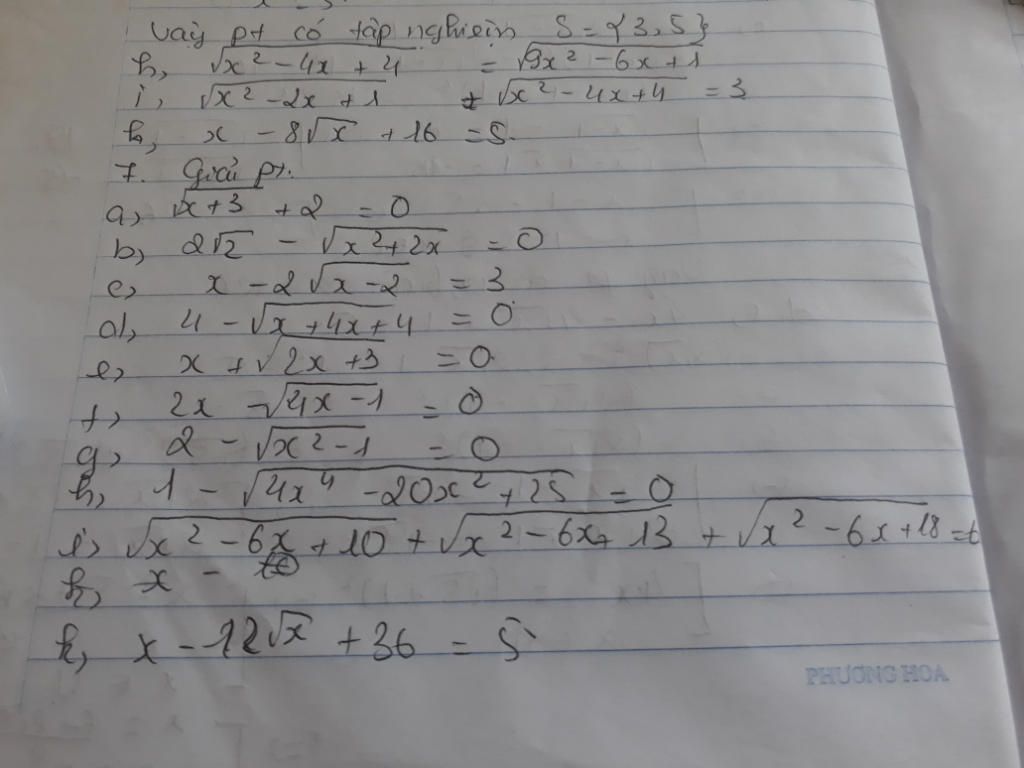 Vậy pt có tập nghiệm S = {3,5}
h, √x² - 4x + 4 = √9x² - 6x + 1
i, √x² - 2x + 1 + √x² - 4x + 4 = 3
k, x - 8√x + 16 = 5.
7. Giải pt.
a, √x+3 + 2 = 0
b, 2√2 - √x² + 2x = 0
c, x - 2√x - 2 = 3
d, 4 - √x + 4x + 4 = 0
e, x + √2x + 3 = 0
f, 2x - √4x - 1 = 0
g, 2 - √x² - 1 = 0
h, 1 - √4x⁴ - 20x² + 25 = 0
i, √x² - 6x + 10 + √x² - 6x + 13 + √x² - 6x + 18 =
k, x -
k, x - 12√x + 36 = 5
PHƯƠNG HOA